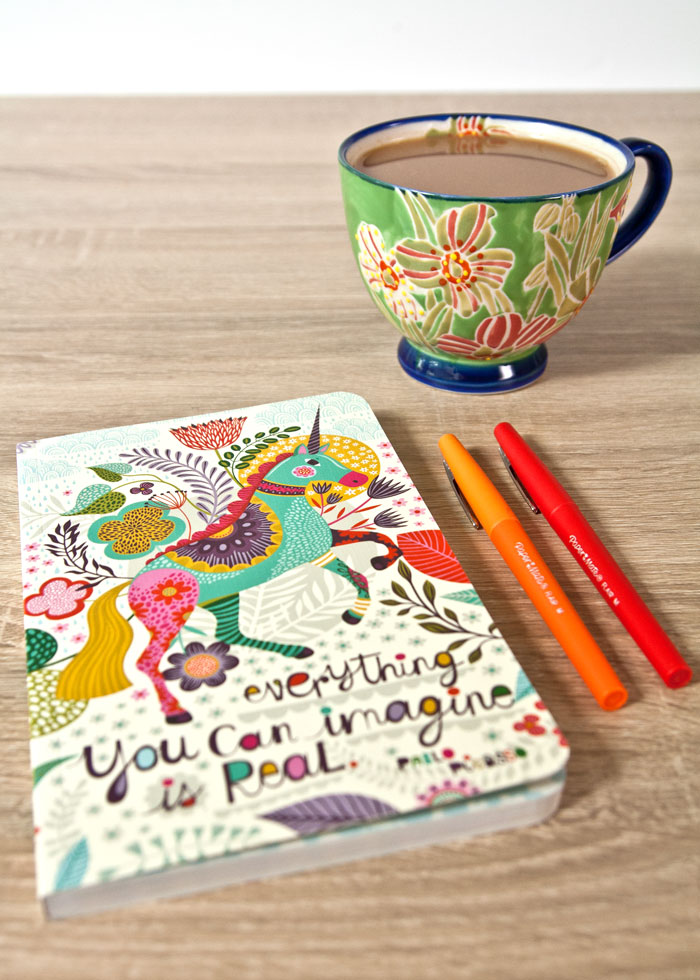 everything
You can imagine
is Real.
Pablo Picasso
Paper Mate® FLAIR M
Paper Mate® FLAIR M